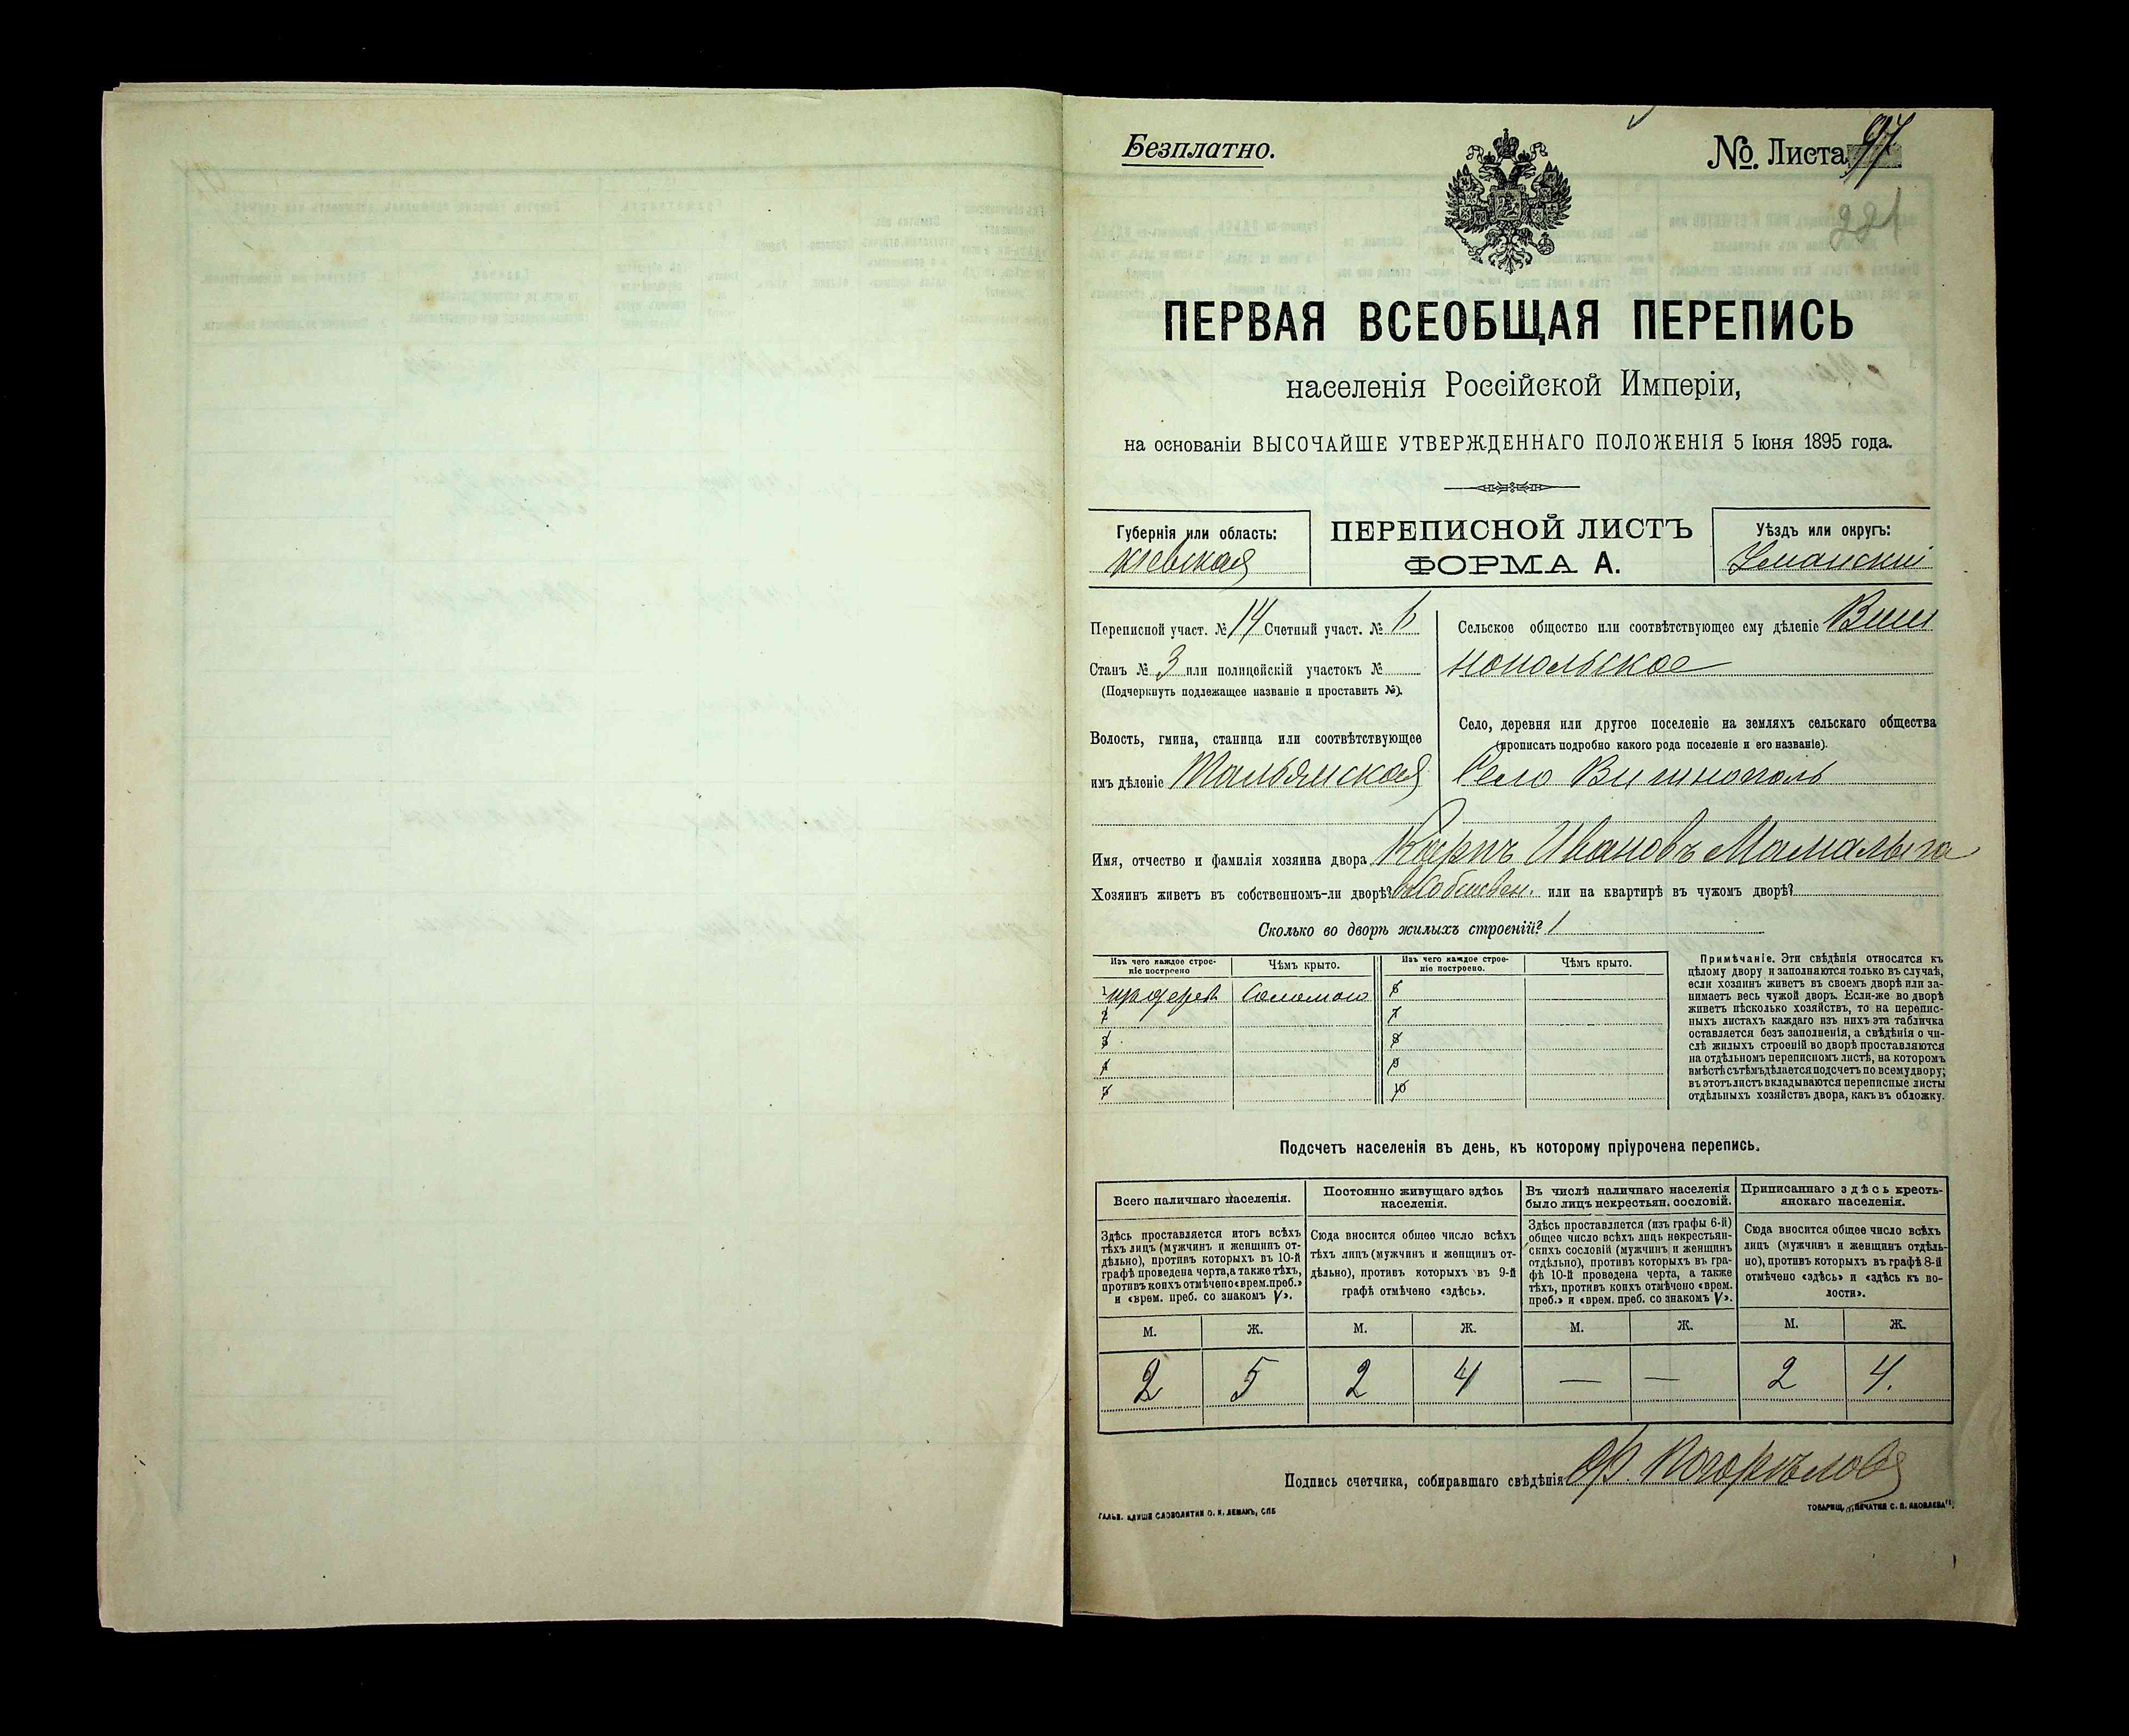 Безплатно.
№ Листа 97
221
ПЕРВАЯ ВСЕОБЩАЯ ПЕРЕПИСЬ
населенія Россійской Имперіи,
на основаніи ВЫСОЧАЙШЕ УТВЕРЖДЕННАГО ПОЛОЖЕНІЯ 5 Іюня 1895 года.
Губернія или область:
Кіевская
ПЕРЕПИСНОЙ ЛИСТЪ
ФОРМА А.
Уѣздъ или округъ:
Уманскій
Переписной участ. № 14 Счетный участ. № 6
Станъ № 3 или полицейскій участокъ №
(Подчеркнуть подлежащее названіе и проставить №).
Волость, гмина, станица или соотвѣтствующее
имъ дѣленіе Тальянская
Сельское общество или соотвѣтствующее ему дѣленіе Виш
нопольское
Село, деревня или другое поселеніе на земляхъ сельскаго общества
(прописать подробно какого рода поселеніе и его названіе).
Село Вишнополь
Имя, отчество и фамилія хозяина двора Карпъ Ивановъ Мамалыга
Хозяинъ живетъ въ собственномъ-ли дворѣ? въ собствен. или на квартирѣ въ чужомъ дворѣ?
Сколько во дворѣ жилыхъ строеній? 1
Изъ чего каждое строе-
ніе построено
Чѣмъ крыто.
Изъ чего каждое строе-
ніе построено.
Чѣмъ крыто.
1 Соломою 6
2 7
3 8
4 9
5 10
Примѣчаніе. Эти свѣдѣнія относятся къ
цѣлому двору и заполняются только въ случаѣ,
если хозяинъ живетъ въ своемъ дворѣ или за-
нимаетъ весь чужой дворъ. Если-же во дворѣ
живетъ нѣсколько хозяйствъ, то на перепис-
ныхъ листахъ каждаго изъ нихъ эта табличка
оставляется безъ заполненія, а свѣдѣнія о чи-
слѣ жилыхъ строеній во дворѣ проставляются
на отдѣльномъ переписномъ листѣ, на которомъ
вмѣстѣ съ тѣмъ дѣлается подсчетъ по всему двору;
въ этотъ листъ вкладываются переписные листы
отдѣльныхъ хозяйствъ двора, какъ въ обложку.
Подсчетъ населенія въ день, къ которому пріурочена перепись.
Всего наличнаго населенія.
Здѣсь проставляется итогъ всѣхъ
тѣхъ лицъ (мужчинъ и женщинъ от-
дѣльно), противъ которыхъ въ 10-й
графѣ проведена черта, а также тѣхъ,
противъ коихъ отмѣчено «врем. преб.»
и «врем. преб. со знакомъ V».
Постоянно живущаго здѣсь
населенія.
Сюда вносится общее число всѣхъ
тѣхъ лицъ (мужчинъ и женщинъ от-
дѣльно), противъ которыхъ въ 9-й
графѣ отмѣчено «здѣсь».
Въ числѣ наличнаго населенія
было лицъ некрестьян. сословій.
Здѣсь проставляется (изъ графы 6-й)
общее число всѣхъ лицъ некрестьян-
скихъ сословій (мужчинъ и женщинъ
отдѣльно), противъ которыхъ въ гра-
фѣ 10-й проведена черта, а также
тѣхъ, противъ коихъ отмѣчено «врем.
преб.» и «врем. преб. со знакомъ V».
Приписаннаго здѣсь кресть-
янскаго населенія.
Сюда вносится общее число всѣхъ
лицъ (мужчинъ и женщинъ отдѣль-
но), противъ которыхъ въ графѣ 8-й
отмѣчено «здѣсь» и «здѣсь въ во-
лости».
М. Ж. М. Ж. М. Ж. М. Ж.
2 5 2 4 — — 2 4.
Подпись счетчика, собиравшаго свѣдѣнія
ГАЛЬВ. КЛИШЕ СЛОВОЛИТНИ О. И. ЛЕМАНЪ, СПБ
ТОВАРИЩ. „ПЕЧАТНЯ С. П. ЯКОВЛЕВА“.